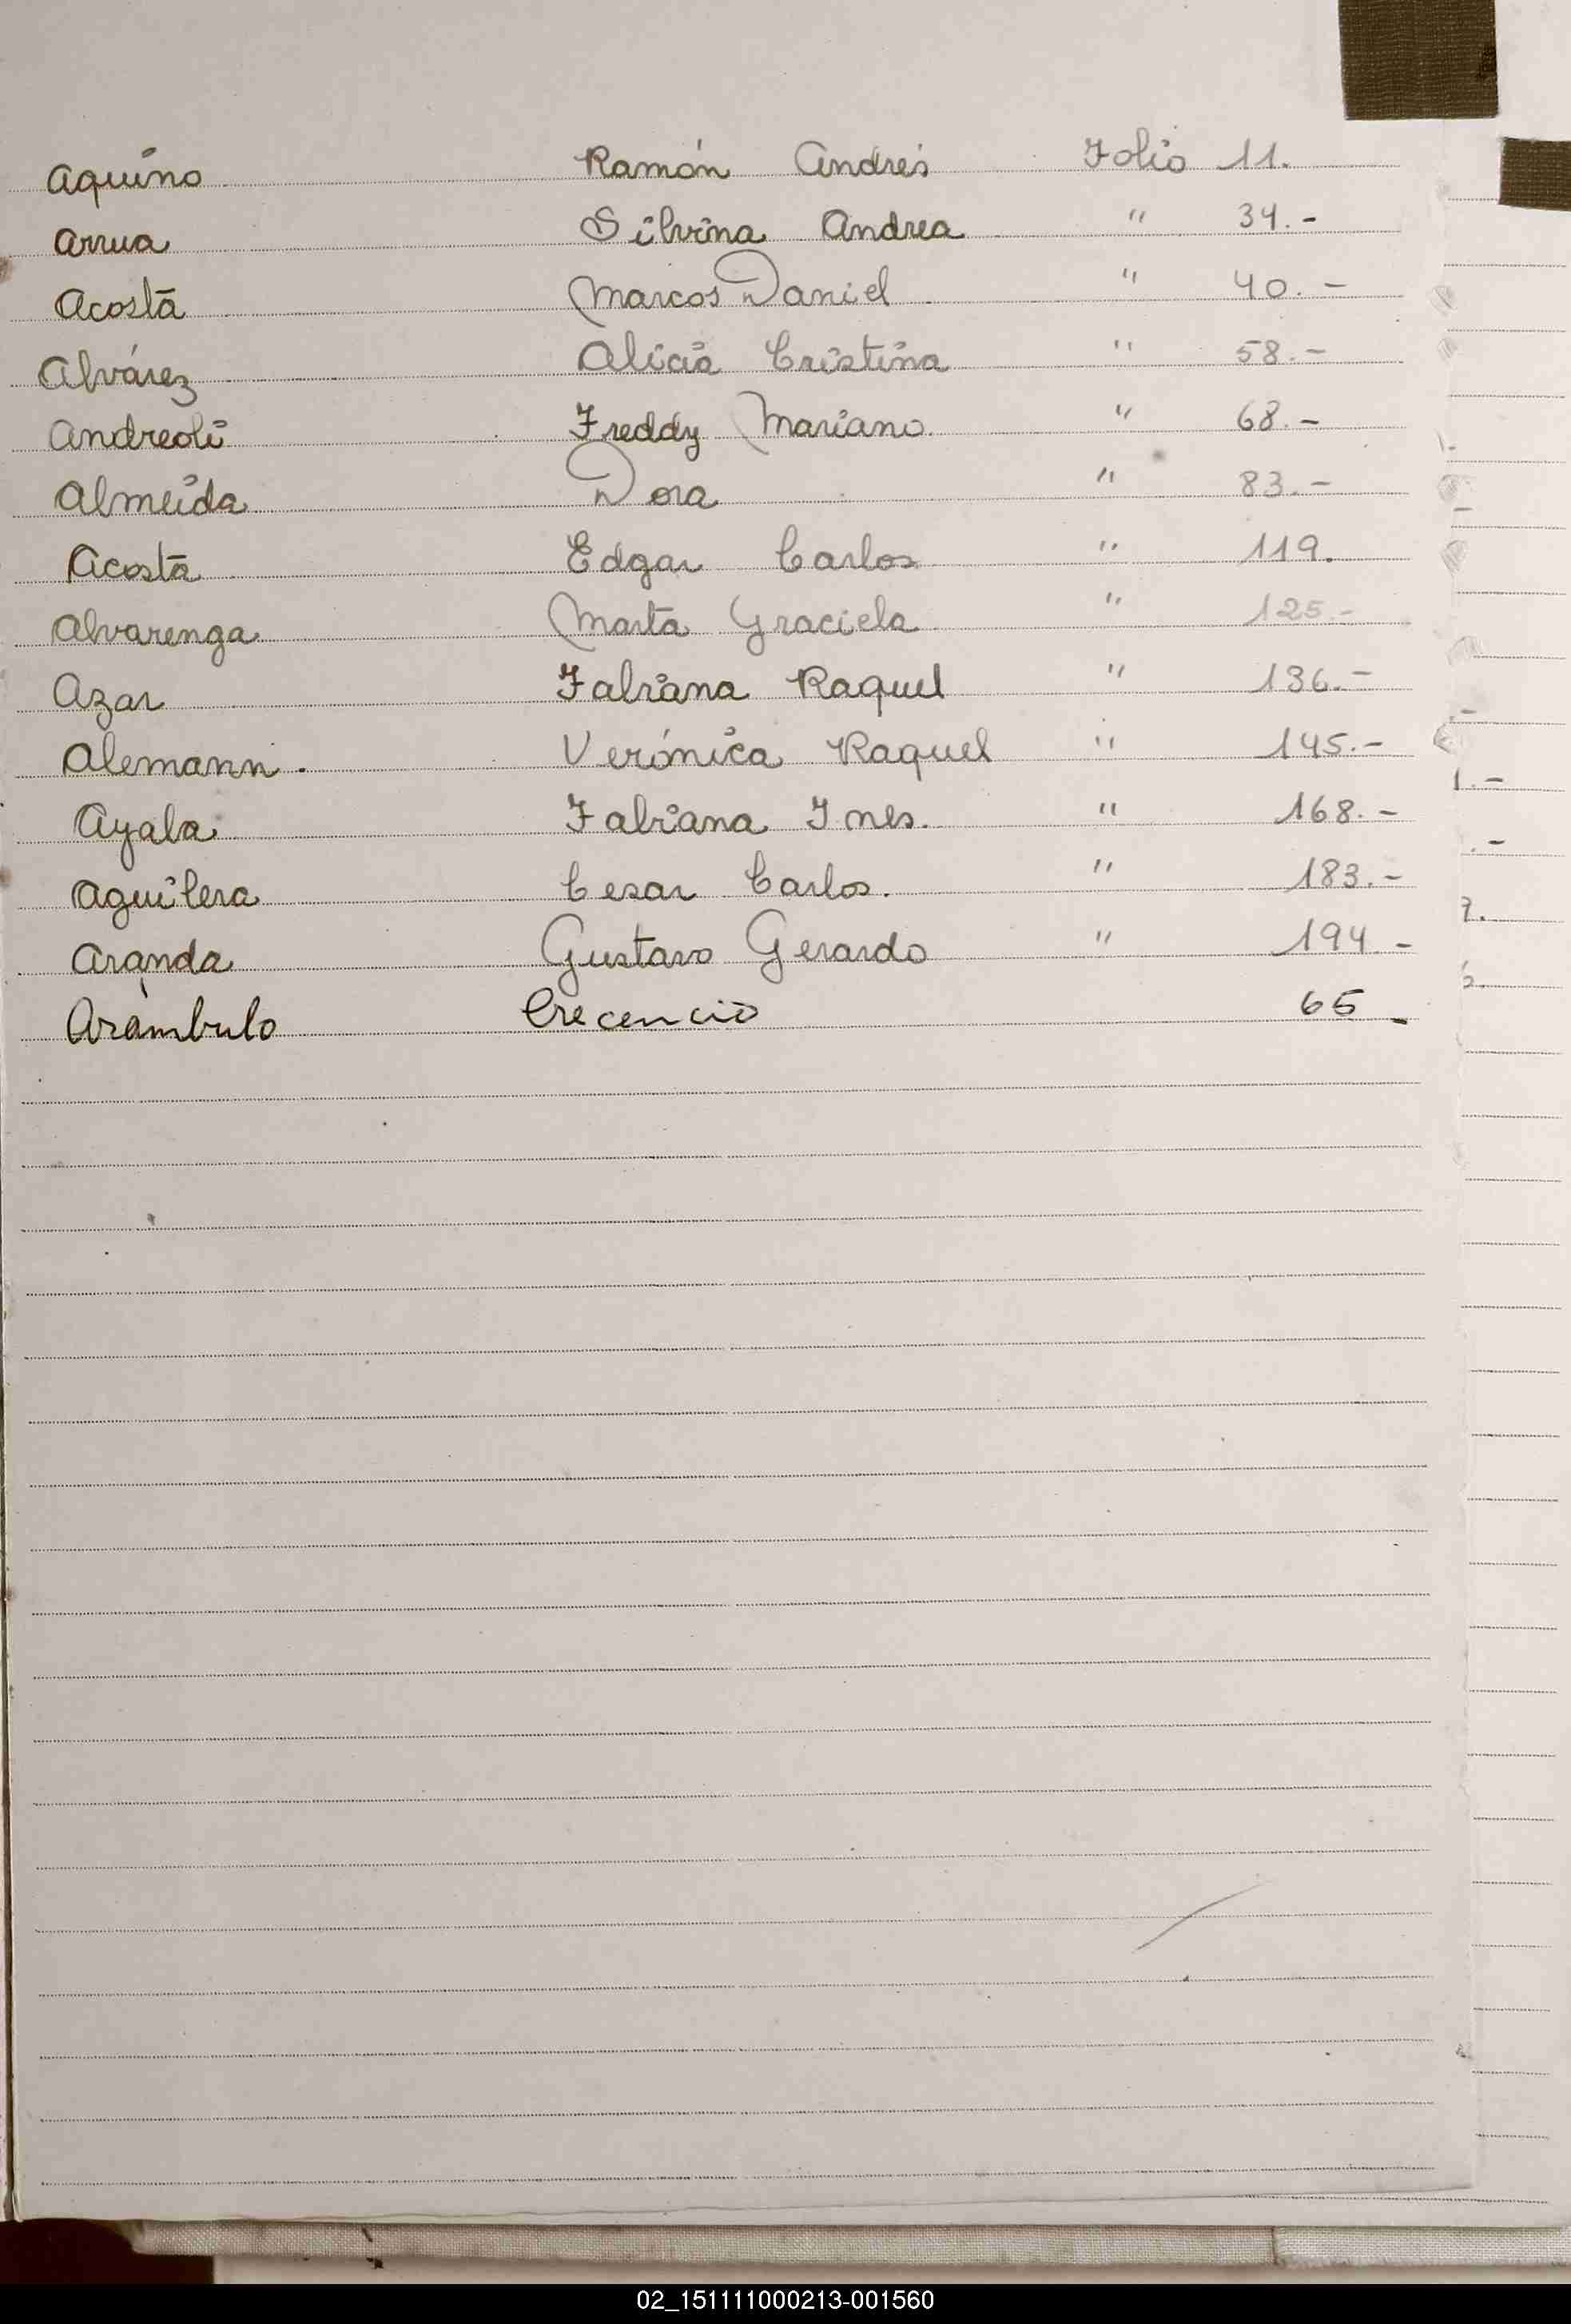 Aquino Ramón Andrés Folio 11.
Arrua Silvina Andrea " 34.-
Acosta Marcos Daniel " 40.-
Alvárez Alicia Cristina " 58.-
Andreoli Freddy Mariano. " 68.-
Almeida Dora " 83.-
Acosta Edgar Carlos " 119.
Alvarenga Marta Graciela " 125.-
Azar Fabiana Raquel " 136.-
Alemann. Verónica Raquel " 145.-
Ayala Fabiana Ines. " 168.-
Aguilera Cesar Carlos. " 183.-
Aranda Gustavo Gerardo " 194.-
Arámbulo Crecencio 65-
02_151111000213-001560